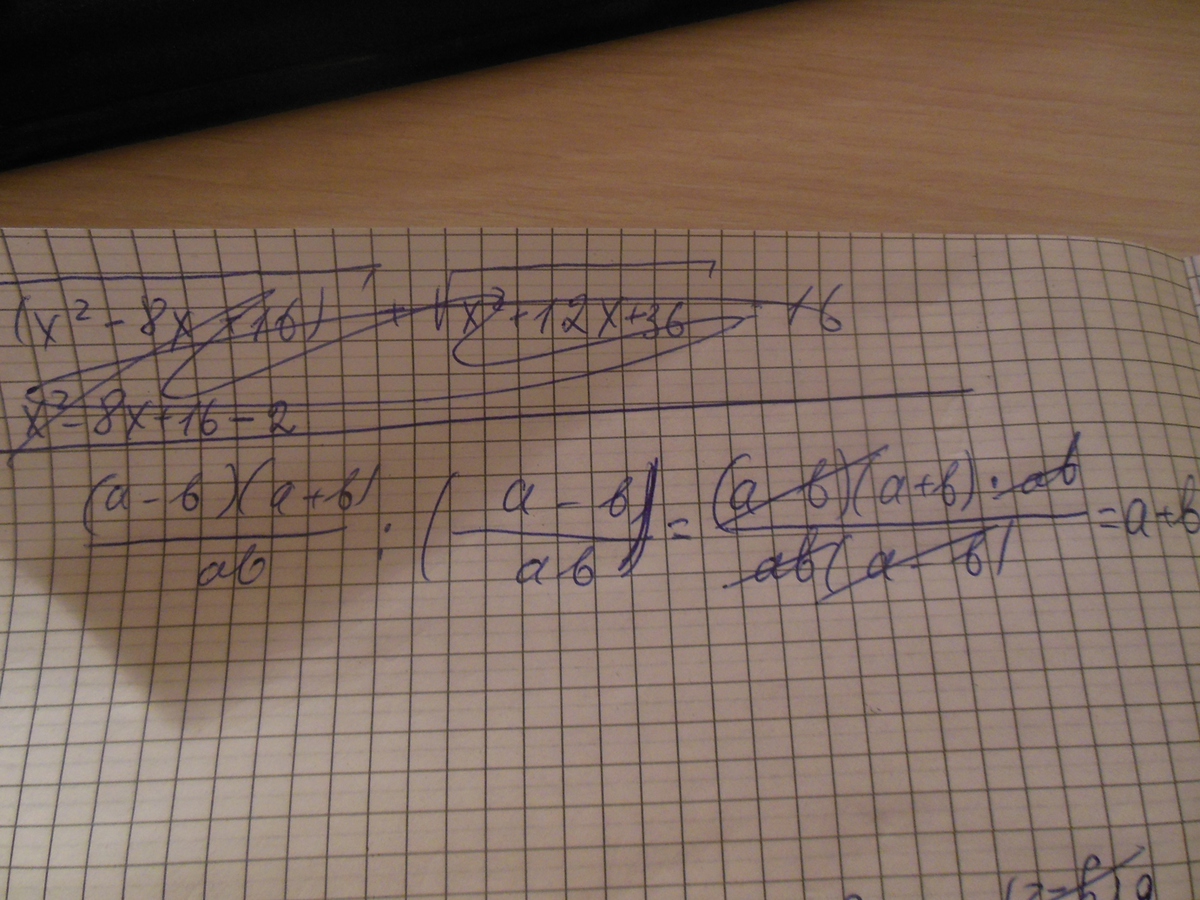 (x² - 8x + 16) + √x² + 12x + 36 + 6
x² - 8x + 16 - 2
(a - b)(a + b) / ab : (a - b / ab) = (a - b)(a + b) · ab / ab(a - b) = a + b